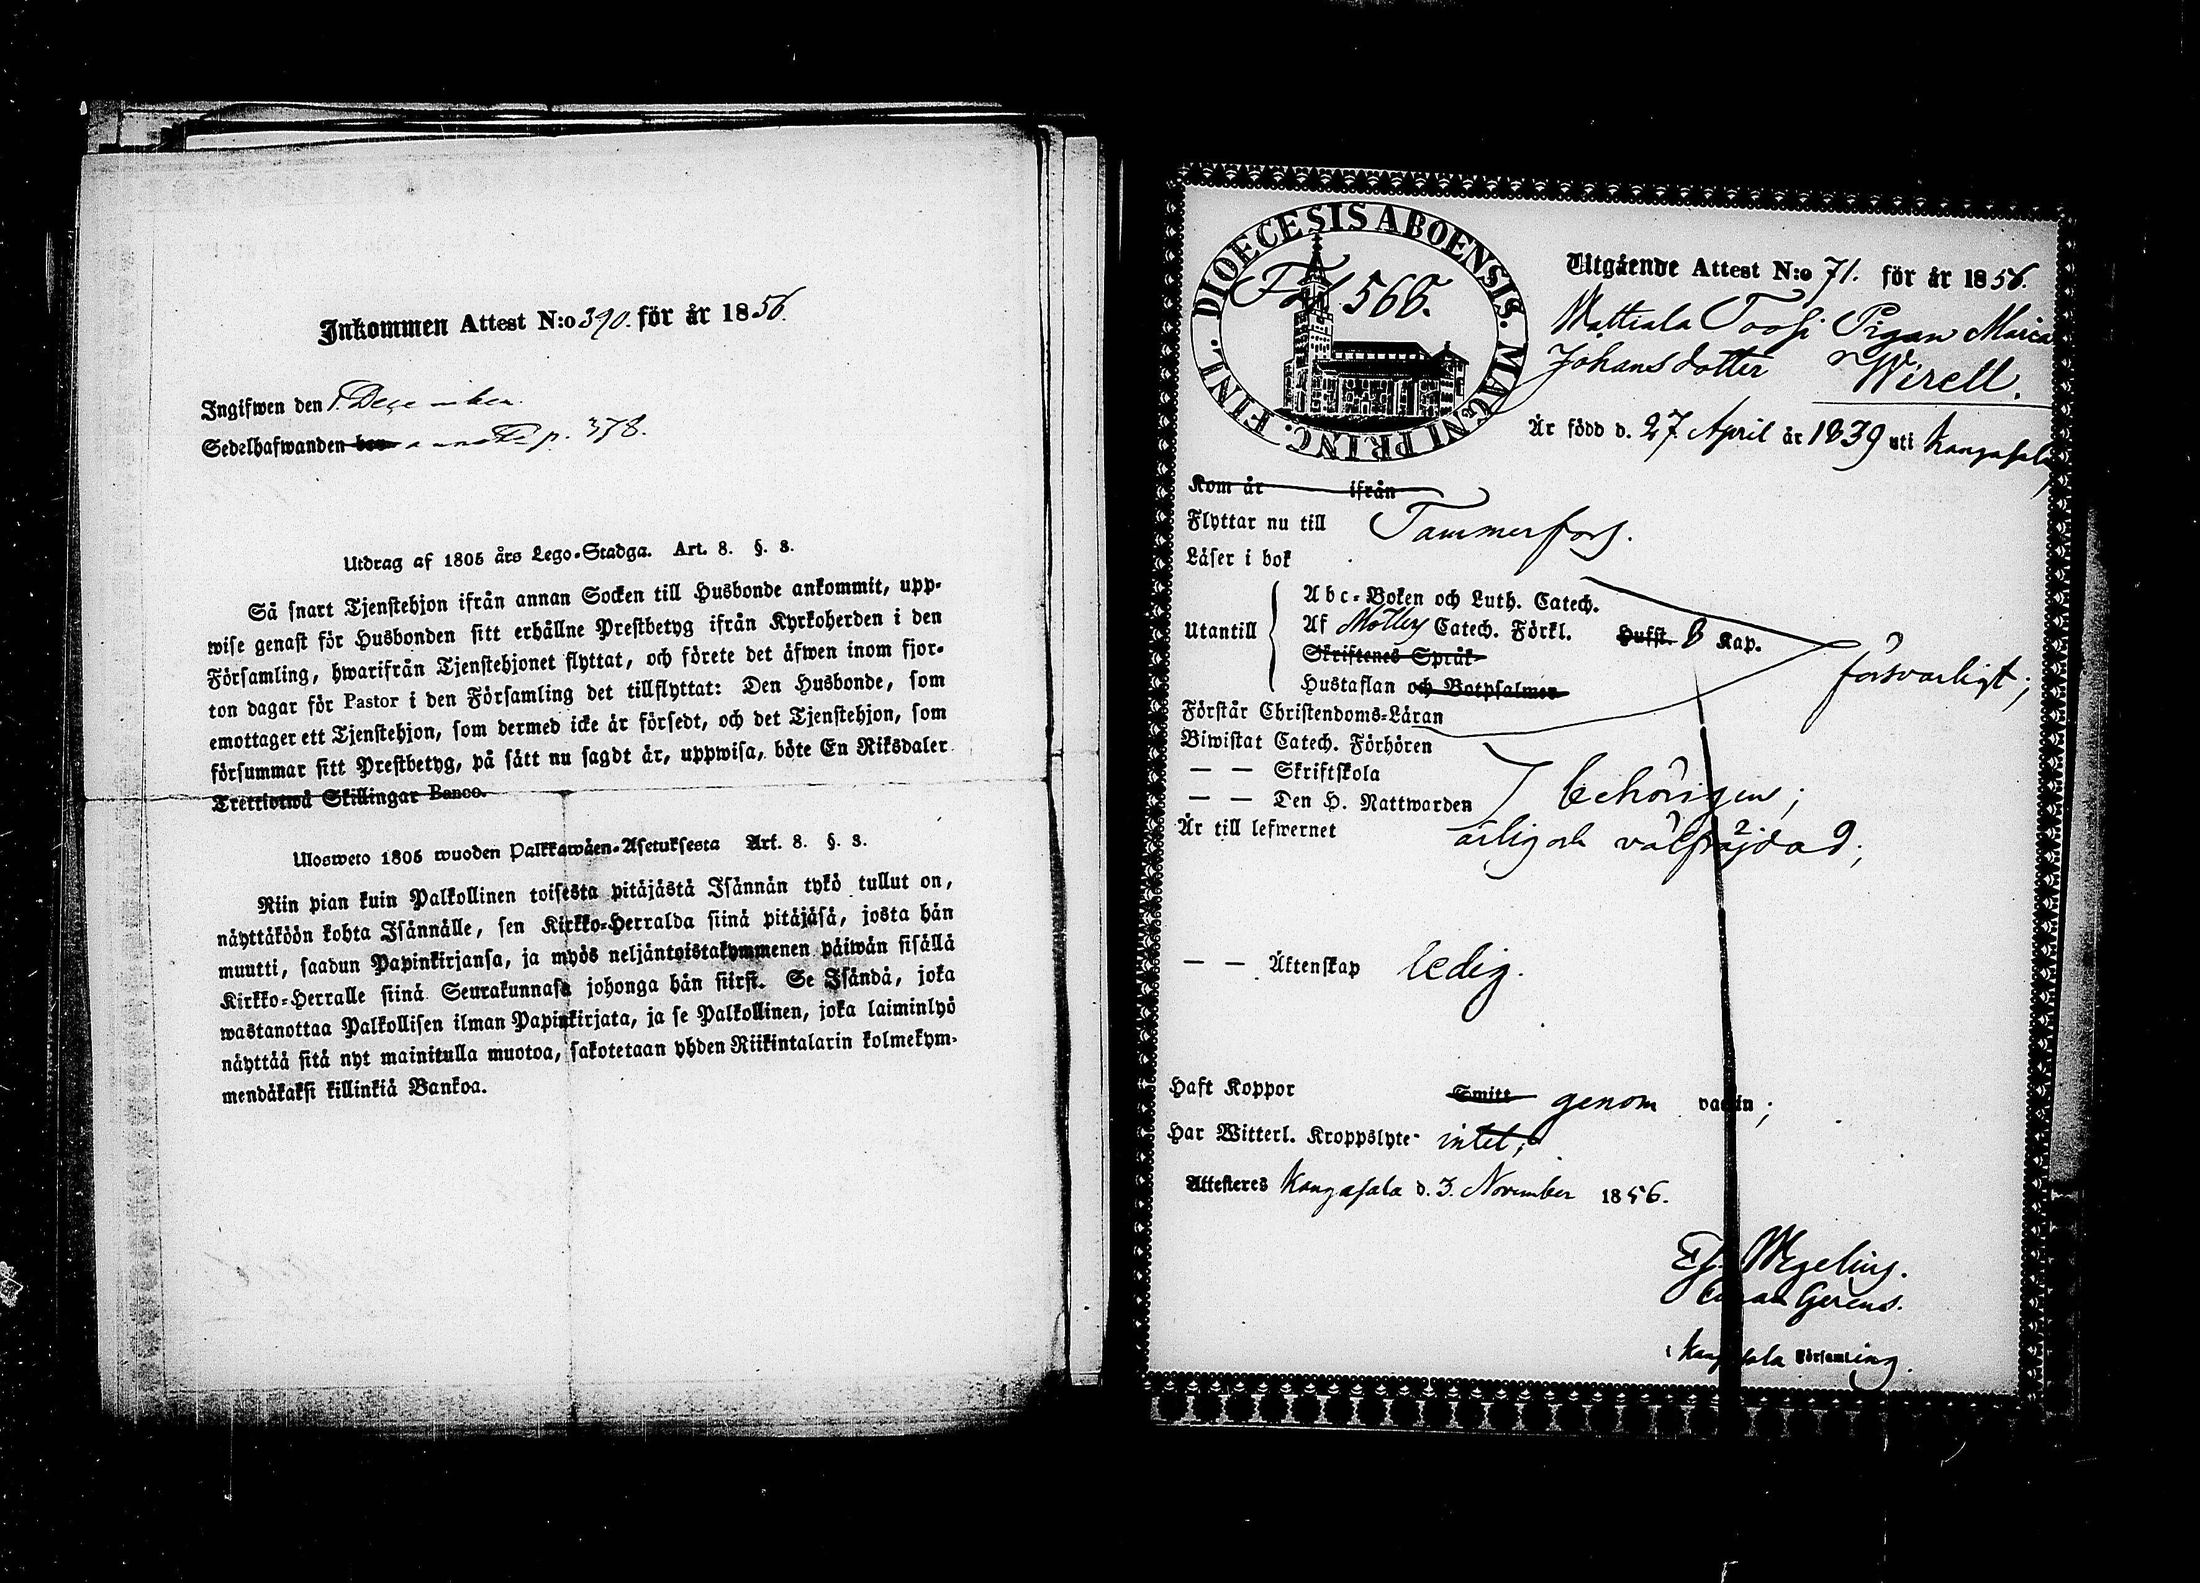 Inkommen Attest N:o 390. för år 1856.
Ingifwen den 1. December.
Sedelhafwanden p. 378.
Utdrag af 1805 års Lego-Stadga. Art. 8. §. 3.
Så snart Tjenstehjon ifrån annan Socken till Husbonde ankommit, upp-
wise genast för Husbonden sitt erhållne Prestbetyg ifrån Kyrkoherden i den
Församling, hwarifrån Tjenstehjonet flyttat, och förete det äfwen inom fjor-
ton dagar för Pastor i den Församling det tillflyttat: Den Husbonde, som
emottager ett Tjenstehjon, som dermed icke är försedt, och det Tjenstehjon, som
försummar sitt Prestbetyg, på sätt nu sagdt är, uppwisa, böte En Riksdaler
Trettiotwå Skillingar Banco.
Ulosweto 1805 wuoden Palkkawäen-Asetuksesta Art. 8. §. 3.
Niin pian kuin Palkollinen toisesta pitäjästä Isännän tykö tullut on,
näyttäköön kohta Isännälle, sen Kirkko-Herralda siinä pitäjäsä, josta hän
muutti, saadun Papinkirjansa, ja myös neljäntoistakymmenen päiwän sisällä
Kirkko-Herralle siinä Seurakunnasa johonga hän siirst. Se Isändä, joka
wastanottaa Palkollisen ilman Papinkirjata, ja se Palkollinen, joka laiminlyö
näyttää sitä nyt mainitulla muotoa, sakotetaan yhden Riikintalarin kolmekym-
mendäkaksi killinkiä Bankoa.
DIOECESIS ABOENSIS. MAGNI PRINC. FINL.
Fol 568.
Utgående Attest N:o 71. för år 1856.
Mattiala Toosi Pigan Maria
Johansdotter Wirell.
Är född d. 27 April år 1839 uti Kangasala,
Kom år ifrån
Flyttar nu till Tammerfors.
Läser i bok
Utantill
Abc-Boken och Luth. Catech.
Af Möllers Catech. Förkl. Husst. 8 Kap.
Skriftenes Språk
Hustaflan och Botpsalmer
försvarligt;
Förstår Christendoms-Läran
Biwistat Catech. Förhören
— — Skriftskola
— — Den H. Nattwarden behörigen;
Är till lefwernet ärlig och välfräjdad;
— — Äktenskap ledig.
Haft Koppor Smitt genom vaccin;
Har Witterl. Kroppslyte intet;
Attesteres Kangasala d. 3. November 1856.
Wegelius.
Curam Gerens.
i Kangasala Församling.